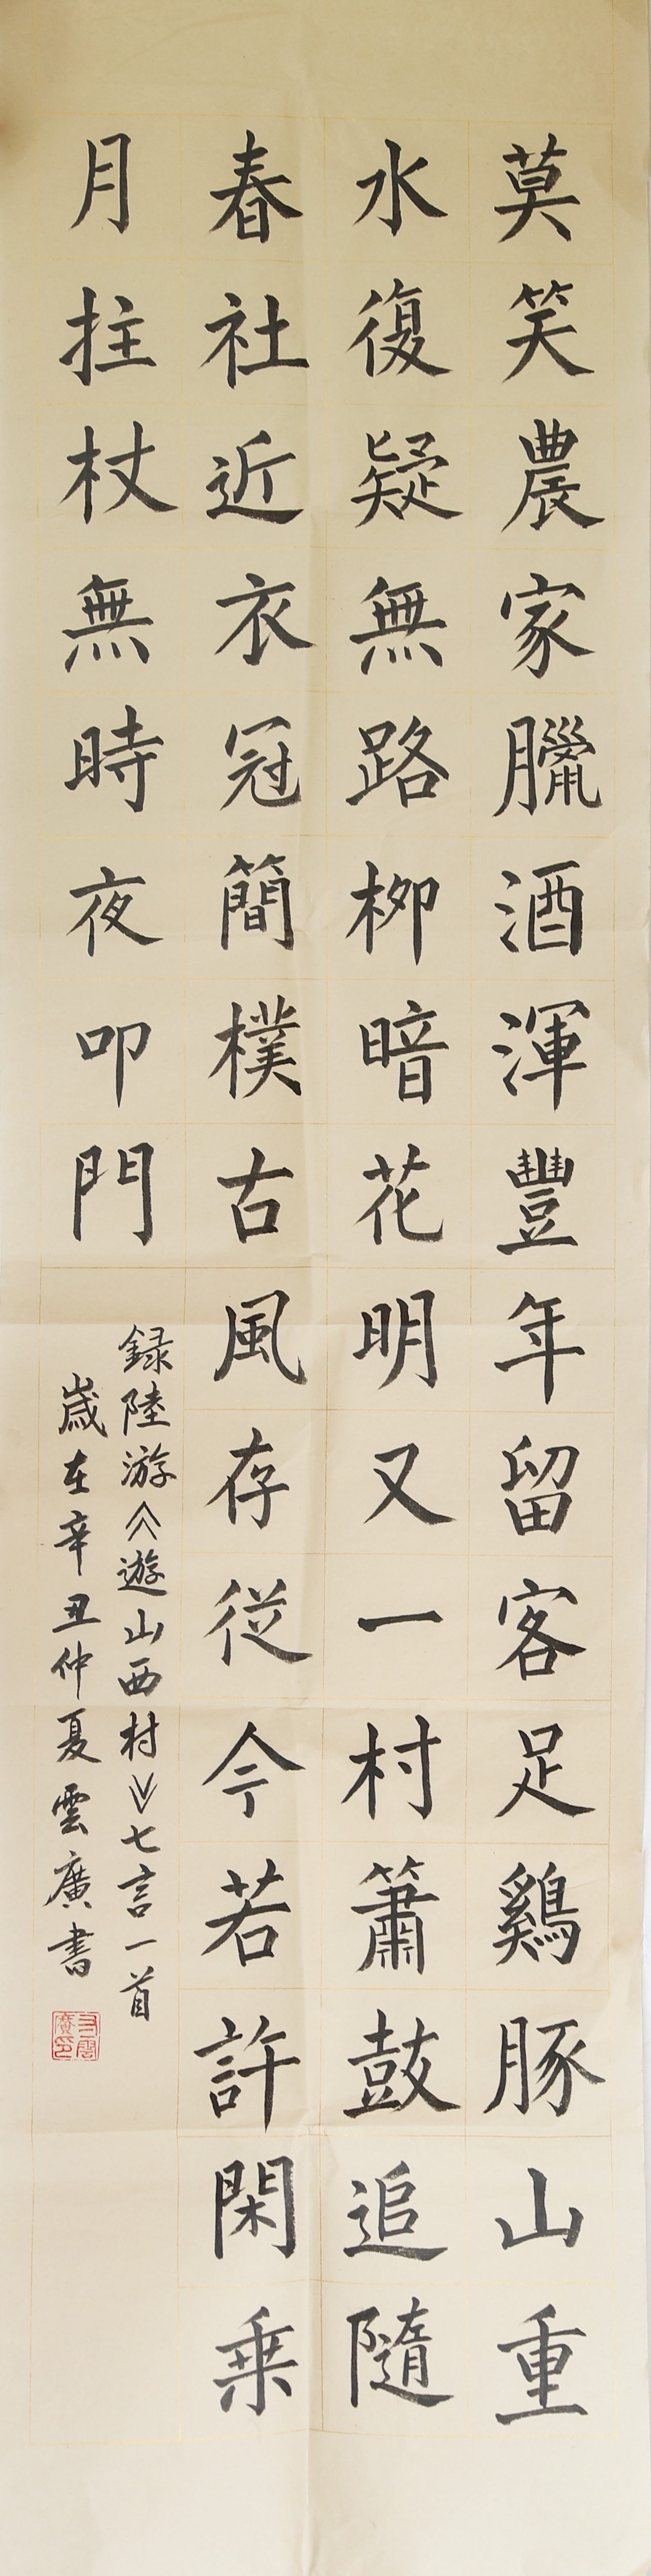 莫笑農家臘酒渾豐年留客足鷄豚山重
水復疑無路柳暗花明又一村簫鼓追隨
春社近衣冠簡樸古風存從今若許閑乗
月拄杖無時夜叩門
録陸游《遊山西村》七言一首
歲在辛丑仲夏雲廣書